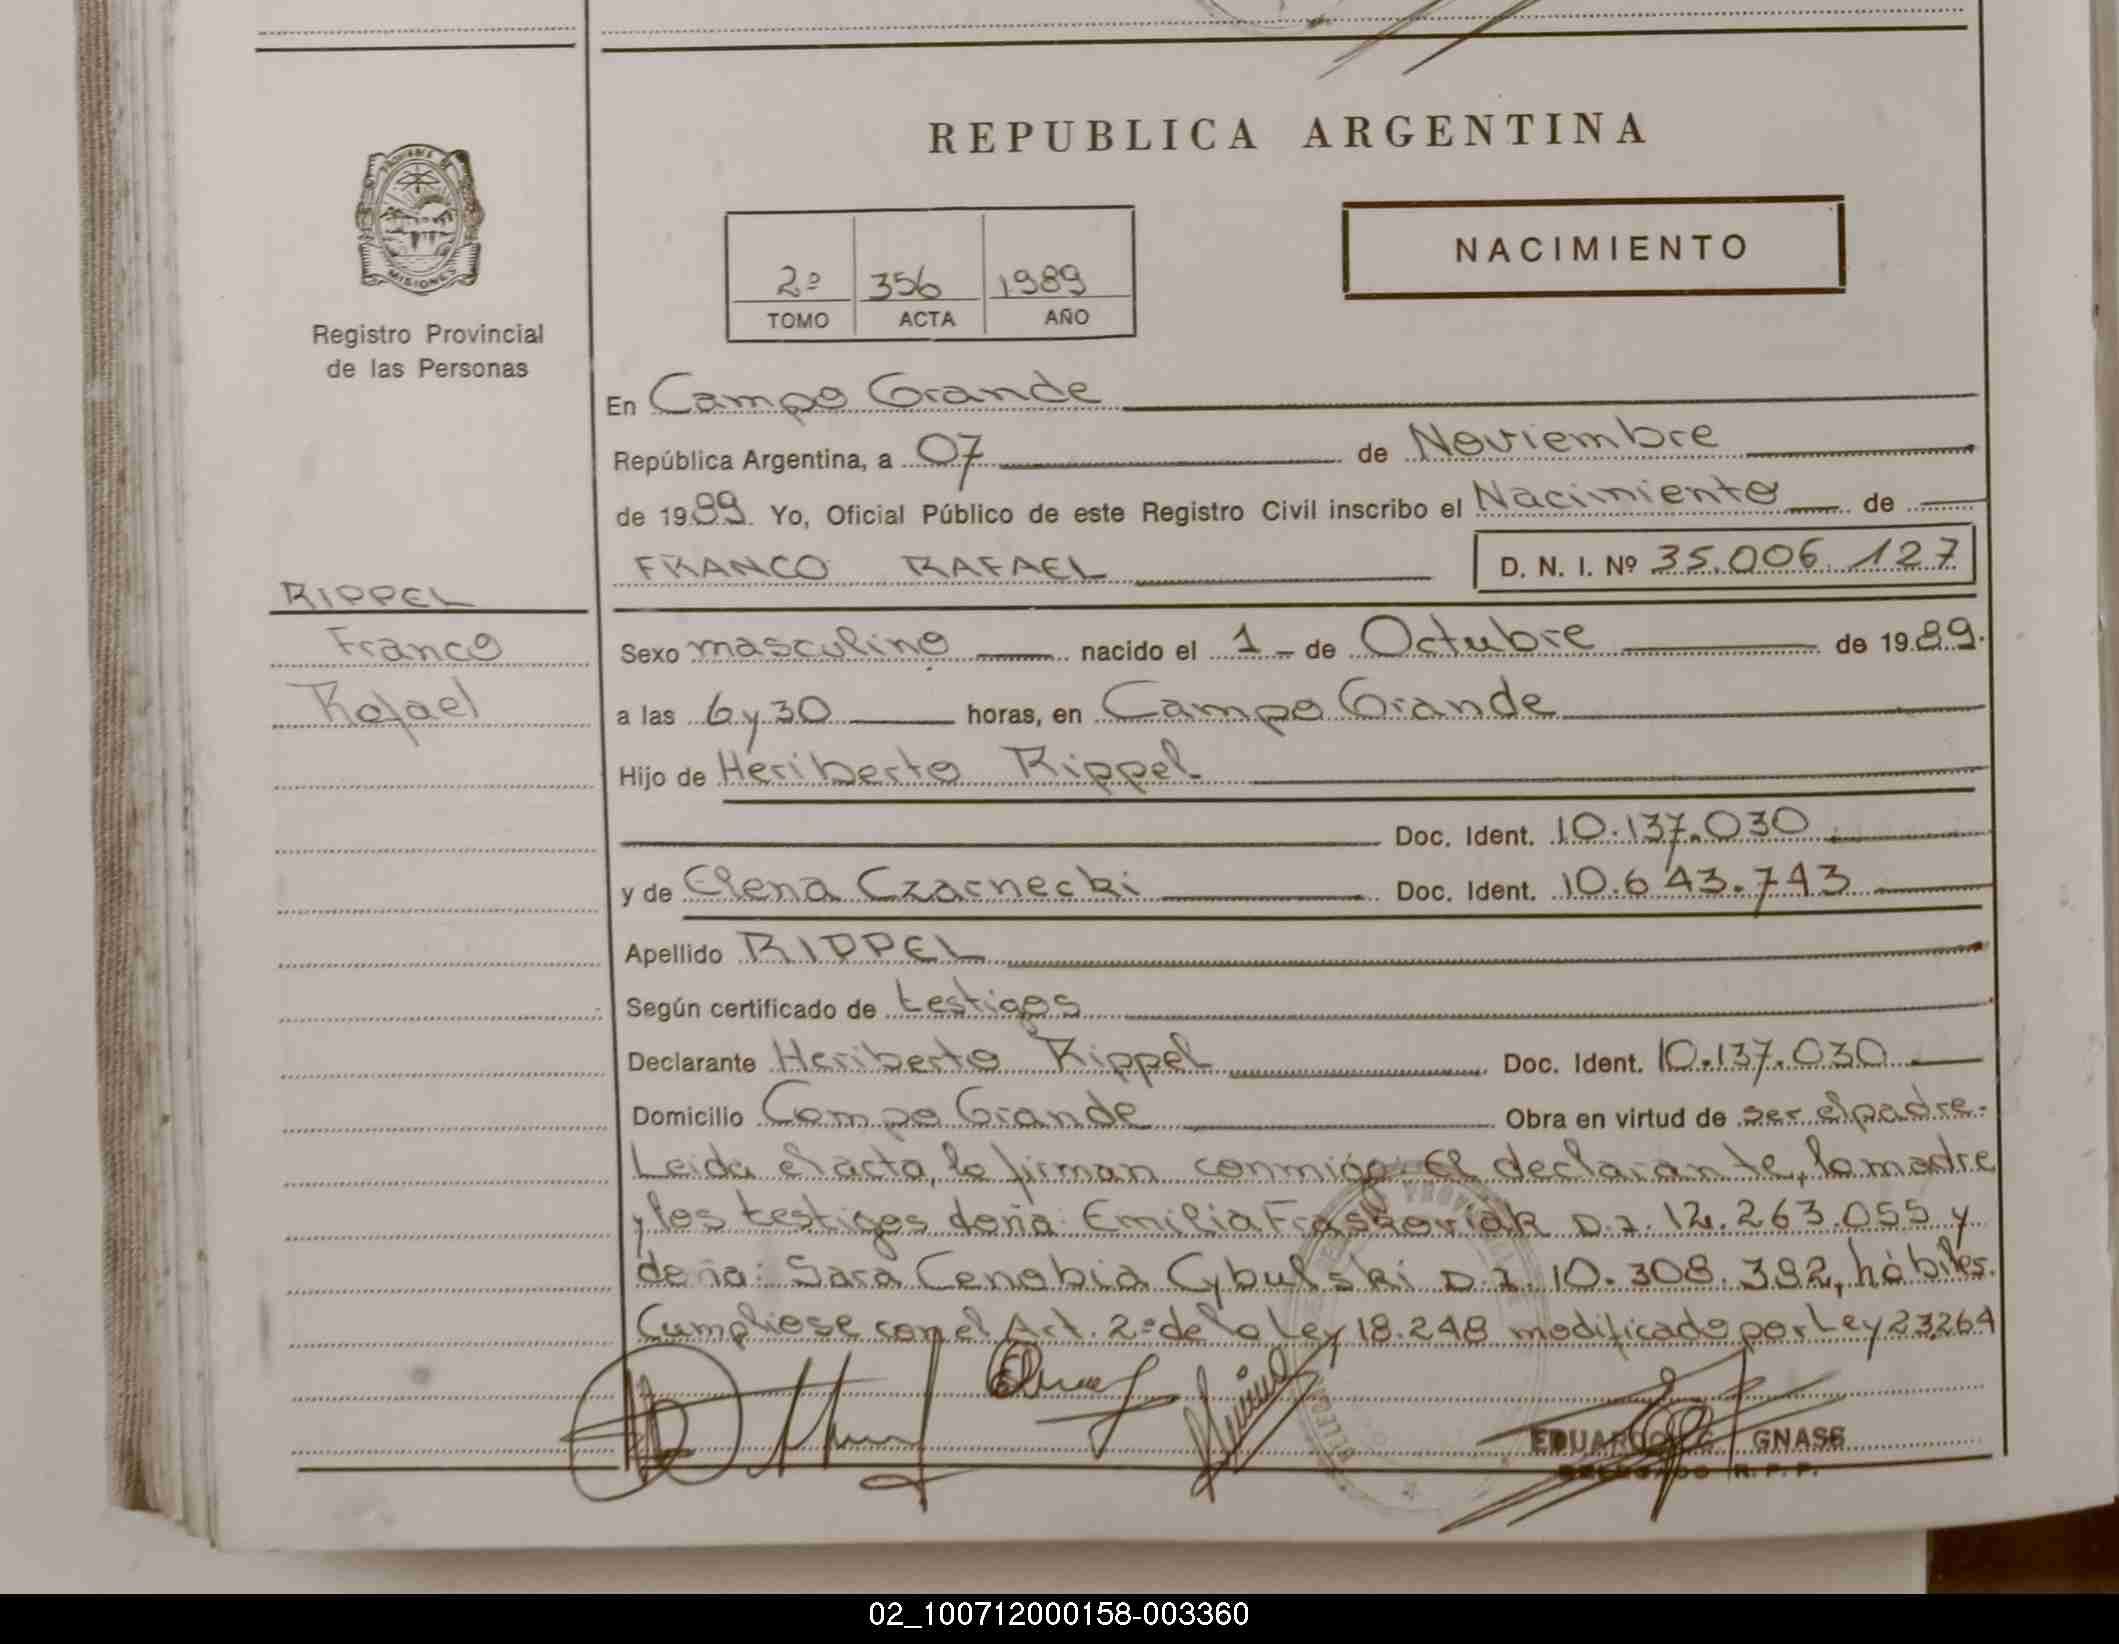 REPUBLICA ARGENTINA
PROVINCIA DE
MISIONES
Registro Provincial
de las Personas
NACIMIENTO
2º 356 1989
TOMO ACTA AÑO
En Campo Grande
República Argentina, a 07 de Noviembre
de 1989. Yo, Oficial Público de este Registro Civil inscribo el Nacimiento de
FRANCO RAFAEL D. N. I. Nº 35.006.127
RIPPEL
Franco
Rafael
Sexo masculino nacido el 1 de Octubre de 1989.
a las 6 y 30 horas, en Campo Grande
Hijo de Heriberto Rippel
Doc. Ident. 10.137.030
y de Elena Czarnecki Doc. Ident. 10.643.743
Apellido RIPPEL
Según certificado de testigos
Declarante Heriberto Rippel Doc. Ident. 10.137.030
Domicilio Campo Grande Obra en virtud de ser el padre.
Leida el acta, la firman conmigo: El declarante, la madre
y los testigos doña: Emilia Fraskoviak D.I. 12.263.055 y
doña: Sara Cenobia Cybulski D.I. 10.308.392, hábiles.
Cumpliose con el Art. 2º de la Ley 18.248 modificado por Ley 23264
EDUARDO GNASS
DELEGADO R. P. P.
02_100712000158-003360